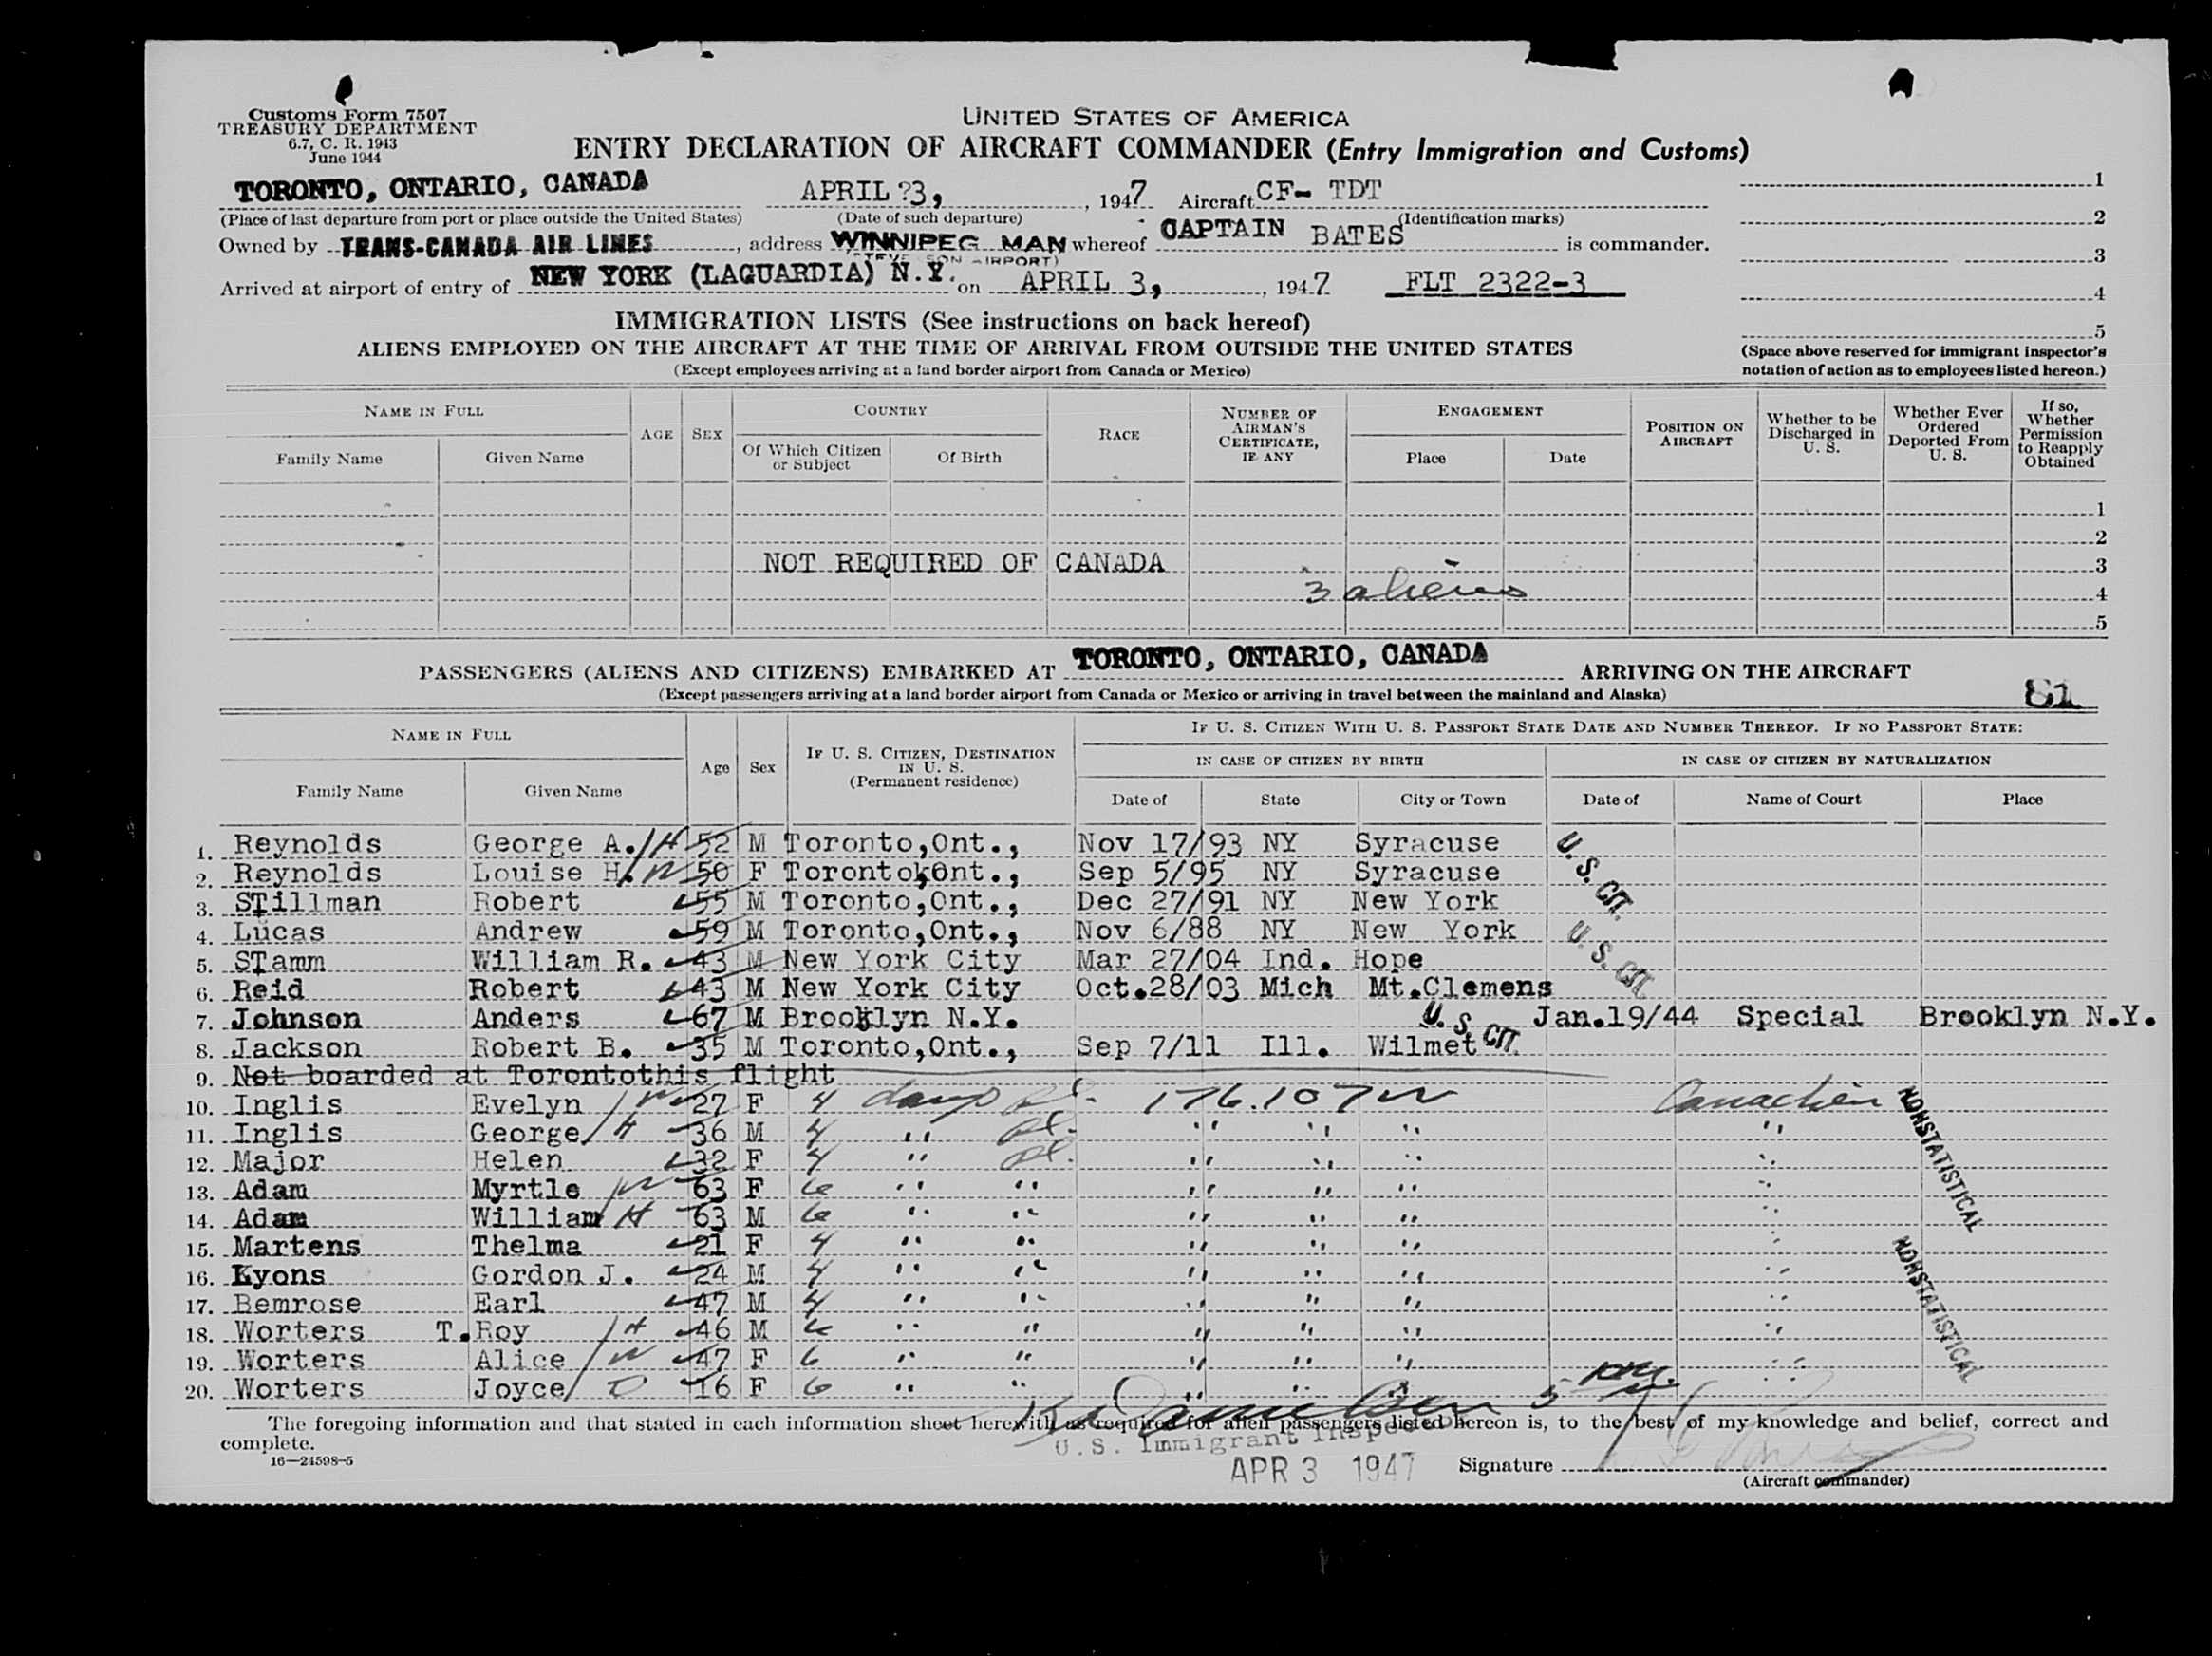 Customs Form 7507
TREASURY DEPARTMENT
6.7, C. R. 1943
June 1944
UNITED STATES OF AMERICA
ENTRY DECLARATION OF AIRCRAFT COMMANDER (Entry Immigration and Customs)
TORONTO, ONTARIO, CANADA APRIL ?3, , 1947 Aircraft CF- TDT 1
(Place of last departure from port or place outside the United States) (Date of such departure) (Identification marks) 2
Owned by TRANS-CANADA AIR LINES , address WINNIPEG MAN whereof CAPTAIN BATES is commander.
3
Arrived at airport of entry of NEW YORK (LAGUARDIA) N.Y. on APRIL 3, , 1947 FLT 2322-3
4
IMMIGRATION LISTS (See instructions on back hereof)
5
ALIENS EMPLOYED ON THE AIRCRAFT AT THE TIME OF ARRIVAL FROM OUTSIDE THE UNITED STATES
(Except employees arriving at a land border airport from Canada or Mexico)
(Space above reserved for immigrant inspector's
notation of action as to employees listed hereon.)
NAME IN FULL
Family Name Given Name
AGE SEX
COUNTRY
Of Which Citizen or Subject Of Birth
RACE
NUMBER OF AIRMAN'S CERTIFICATE, IF ANY
ENGAGEMENT
Place Date
POSITION ON AIRCRAFT
Whether to be Discharged in U. S.
Whether Ever Ordered Deported From U. S.
If so, Whether Permission to Reapply Obtained
1
2
NOT REQUIRED OF CANADA 3
3 aliens 4
5
PASSENGERS (ALIENS AND CITIZENS) EMBARKED AT TORONTO, ONTARIO, CANADA ARRIVING ON THE AIRCRAFT
(Except passengers arriving at a land border airport from Canada or Mexico or arriving in travel between the mainland and Alaska)
81
NAME IN FULL
Family Name Given Name
Age Sex
IF U. S. CITIZEN, DESTINATION IN U. S. (Permanent residence)
IF U. S. CITIZEN WITH U. S. PASSPORT STATE DATE AND NUMBER THEREOF. IF NO PASSPORT STATE:
IN CASE OF CITIZEN BY BIRTH IN CASE OF CITIZEN BY NATURALIZATION
Date of State City or Town Date of Name of Court Place
1. Reynolds George A. H 52 M Toronto,Ont., Nov 17/93 NY Syracuse
2. Reynolds Louise H. W 50 F Toronto,Ont., Sep 5/95 NY Syracuse
U. S. CIT.
3. STillman Robert 55 M Toronto,Ont., Dec 27/91 NY New York
4. Lucas Andrew 59 M Toronto,Ont., Nov 6/88 NY New York
U. S. CIT.
5. STamm William R. 43 M New York City Mar 27/04 Ind. Hope
6. Reid Robert 43 M New York City Oct.28/03 Mich Mt.Clemens
7. Johnson Anders 67 M Brooklyn N.Y. U. S. CIT. Jan.19/44 Special Brooklyn N.Y.
8. Jackson Robert B. 35 M Toronto,Ont., Sep 7/11 Ill. Wilmet
9. Not boarded at Torontothis flight
10. Inglis Evelyn W 27 F 4 days 176.107 Canadien
11. Inglis George H 36 M 4 " " " " "
12. Major Helen 32 F 4 " " " " "
13. Adam Myrtle W 63 F 6 " " " " " "
14. Adam William H 63 M 6 " " " " " "
NONSTATISTICAL
15. Martens Thelma 21 F 4 " " " " " "
16. Lyons Gordon J. 24 M 4 " " " " " "
17. Bemrose Earl 47 M 4 " " " " " "
18. Worters T. Roy H 46 M 6 " " " " " "
19. Worters Alice W 47 F 6 " " " " " "
20. Worters Joyce D 16 F 6 " " " " " "
NONSTATISTICAL
The foregoing information and that stated in each information sheet herewith as required for alien passengers listed hereon is, to the best of my knowledge and belief, correct and
complete.
U.S. Immigrant Inspector
16—24598-5
APR 3 1947
Signature
(Aircraft commander)